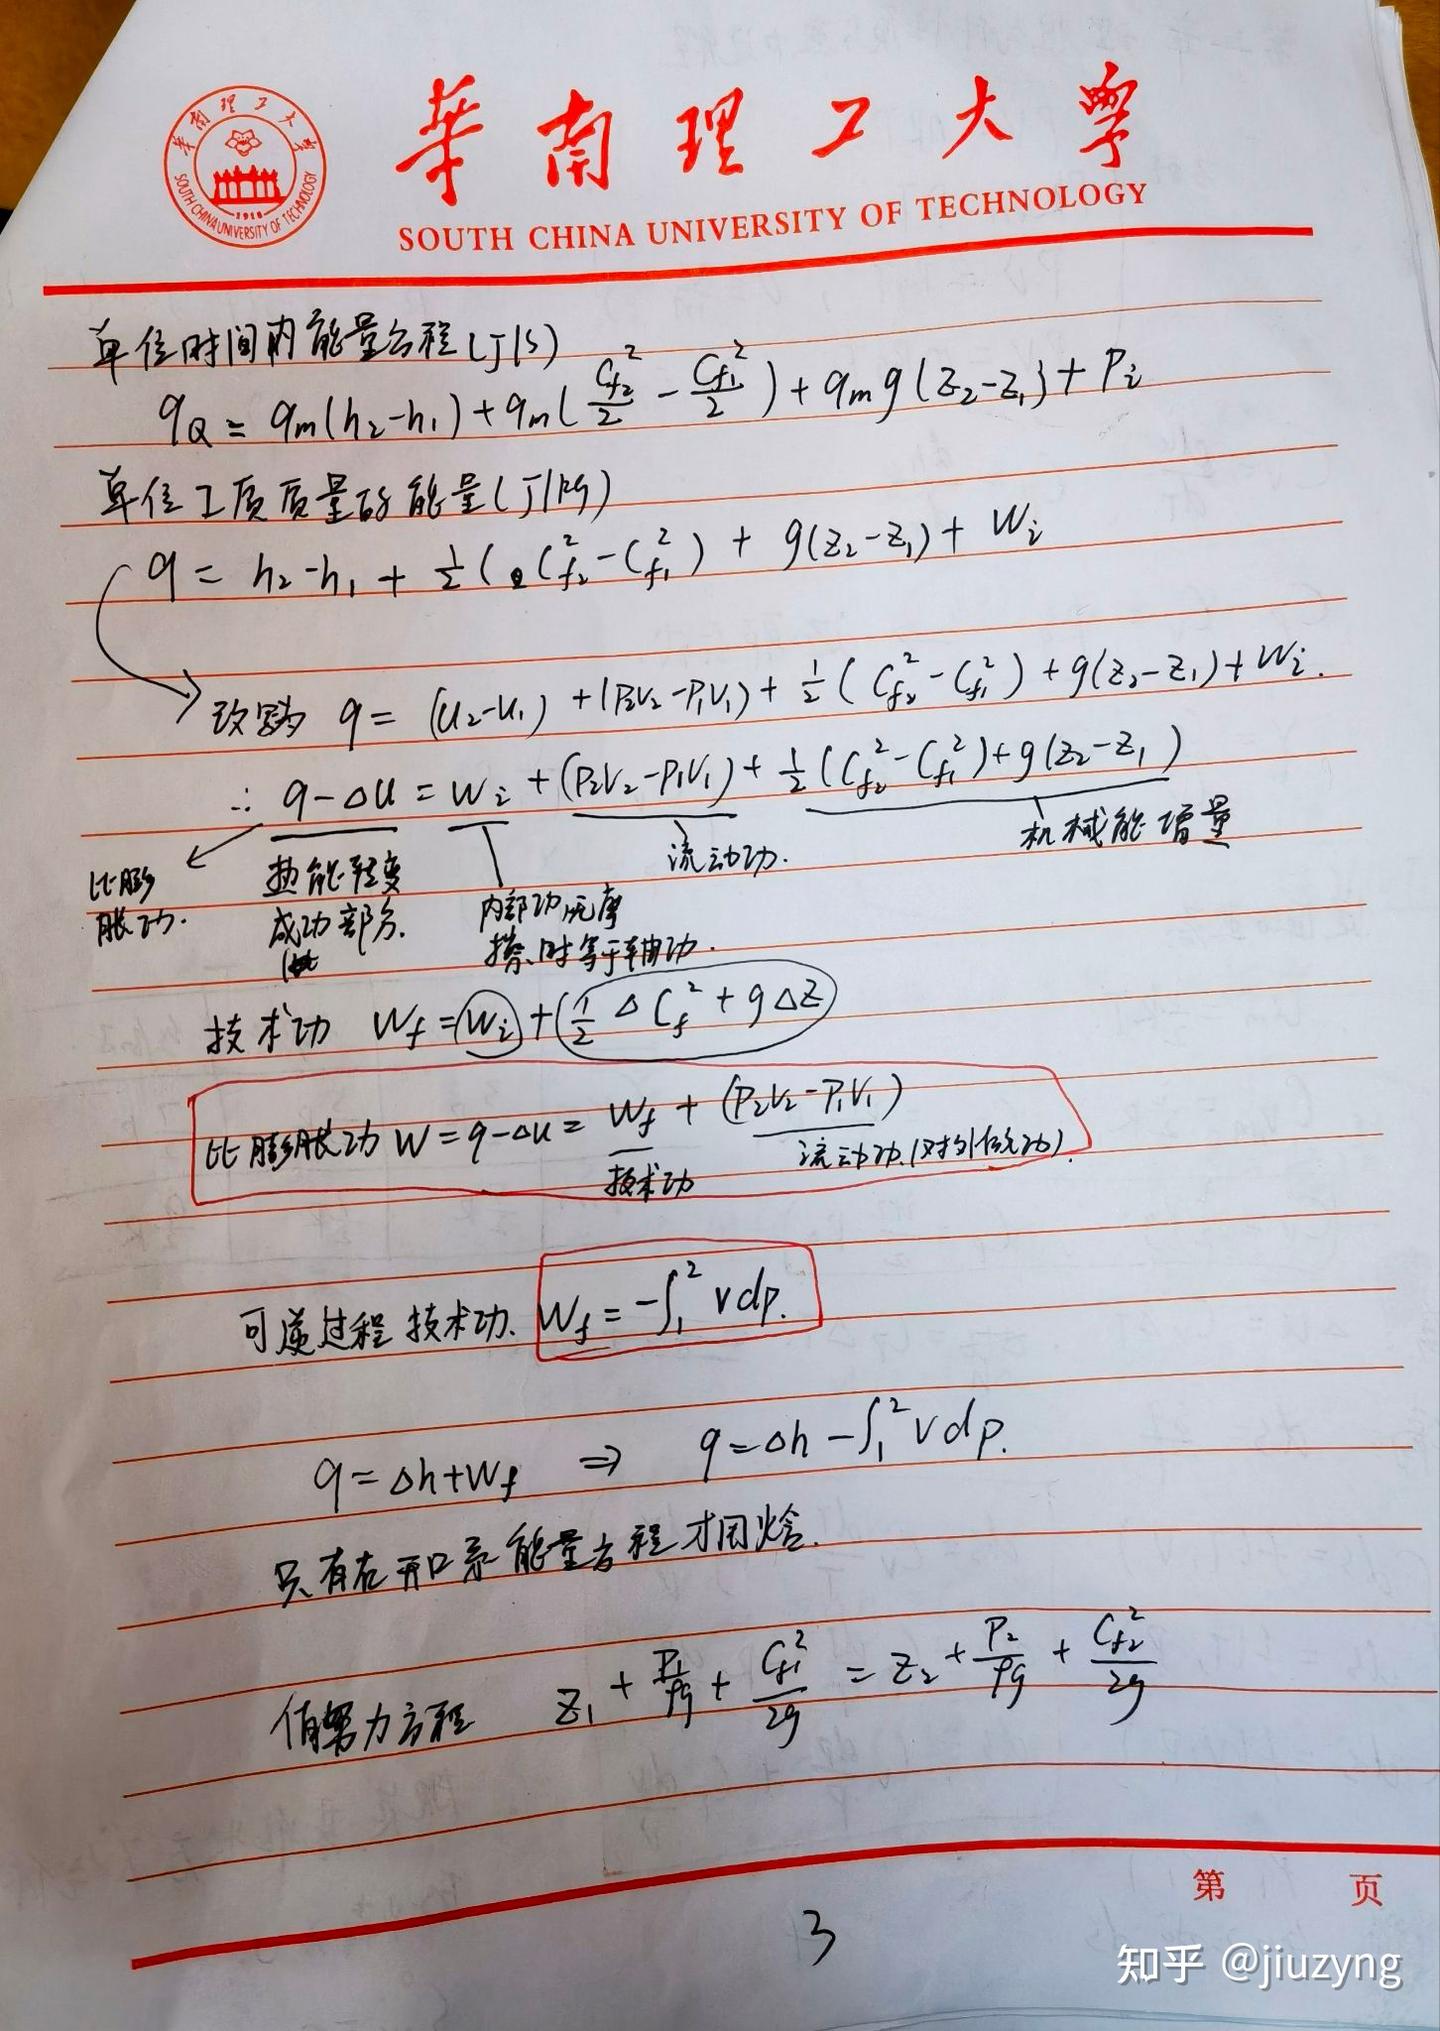 華南理工大學
SOUTH CHINA UNIVERSITY OF TECHNOLOGY
华南理工大学
SOUTH CHINA UNIVERSITY OF TECHNOLOGY
1918
单位时间内能量方程(J/s)
qQ = qm(h₂-h₁)+qm(Cf₂²/2 - Cf₁²/2)+qm g(z₂-z₁)+Pi
单位工质质量的能量(J/kg)
q = h₂-h₁ + ½(Cf₂²-Cf₁²) + g(z₂-z₁)+Wi
改写为 q = (u₂-u₁) +(P₂V₂-P₁V₁)+ ½(Cf₂²-Cf₁²)+g(z₂-z₁)+Wi.
∴ q-Δu = Wi +(P₂V₂-P₁V₁)+ ½(Cf₂²-Cf₁²)+g(z₂-z₁)
比膨胀功.
热能转变成功部分.
内部功无摩擦时等于轴功.
流动功.
机械能增量
技术功 Wf = Wi +(½ΔCf²+gΔZ)
比膨胀功 W = q-Δu = Wf + (P₂V₂-P₁V₁)
技术功
流动功.(对外做功).
可逆过程技术功. Wf = -∫₁² vdp.
q=Δh+Wf ⇒ q=Δh-∫₁² Vdp.
只有在开口系能量方程才用焓.
伯努力方程 z₁ + P₁/ρg + Cf₁²/2g = z₂ + P₂/ρg + Cf₂²/2g
第 页
3
知乎 @jiuzyng